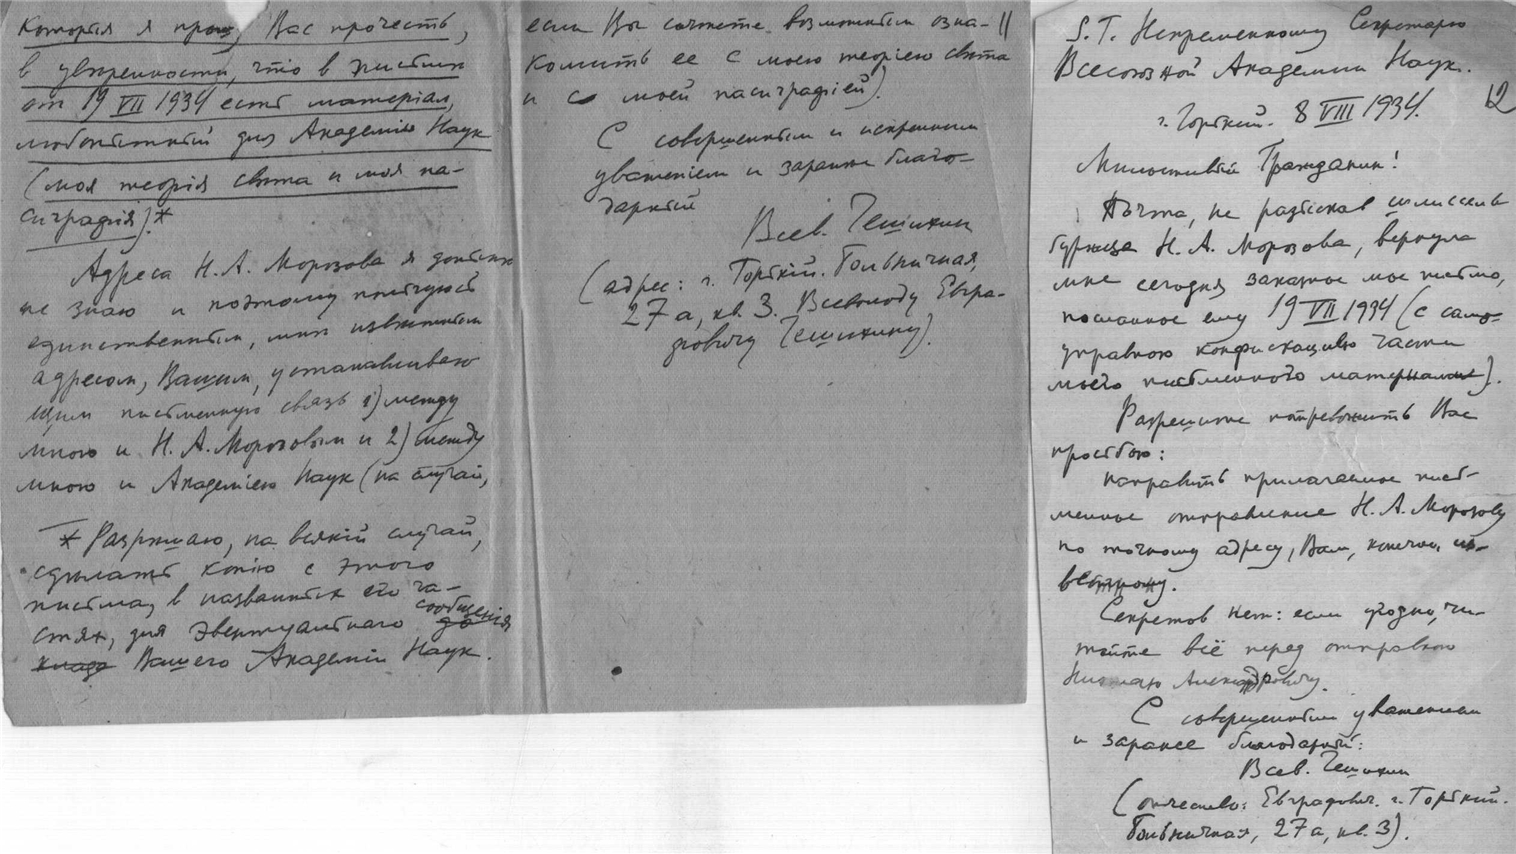 которыя я прошу Вас прочесть,
в увѣренности, что в письмѣ
от 19 VII 1934 есть матеріал,
любопытный для Академіи Наук
(моя теорія свѣта и моя па-
сиграфія).*
Адреса Н. А. Морозова я
не знаю и поэтому пользуюсь
единственным, мнѣ извѣстным
адресом, Вашим, устанавливаю
щим письменную связь 1) между
мною и Н. А. Морозовым и 2) между
мною и Академіею Наук (на случай,
* Разрѣшаю, на всякій случай,
сдѣлать копію с этого
письма, в названных его ча-
стях, для эвентуальнаго сообщенія
Вашего Академіи Наук.
если Вы сочтете возможным озна-
комить ее с моею теоріею свѣта
и с моей пасиграфіей).
11
С совершенным и искренним
уваженіем и заранѣе благо-
дарный
Всев. Чешихин
(адрес: г. Горькій. Больничная,
27а, кв. 3. Всеволоду Евгра-
фовичу Чешихину).
S. T. Непременному Секретарю
Всесоюзной Академии Наук.
12
г. Горький. 8 VIII 1934.
Милостивый Гражданин!
Почта, не разыскав шлиссель
буржца Н. А. Морозова, вернула
мне сегодня заказное мое письмо,
посланное ему 19 VII 1934 (с само-
управною конфискациею части
моего письменного материала).
Разрешите потревожить Вас
просьбою:
направить прилагаемое пись-
менное отправление Н. А. Морозову
по точному адресу, Вам, конечно, из-
вестному.
Секретов нет: если угодно, чи-
тайте всё перед отправкою
Николаю Александровичу.
С совершенным уважением
и заранее благодарный:
Всев. Чешихин
(отчество: Евграфович. г. Горький.
Больничная, 27а, кв. 3).